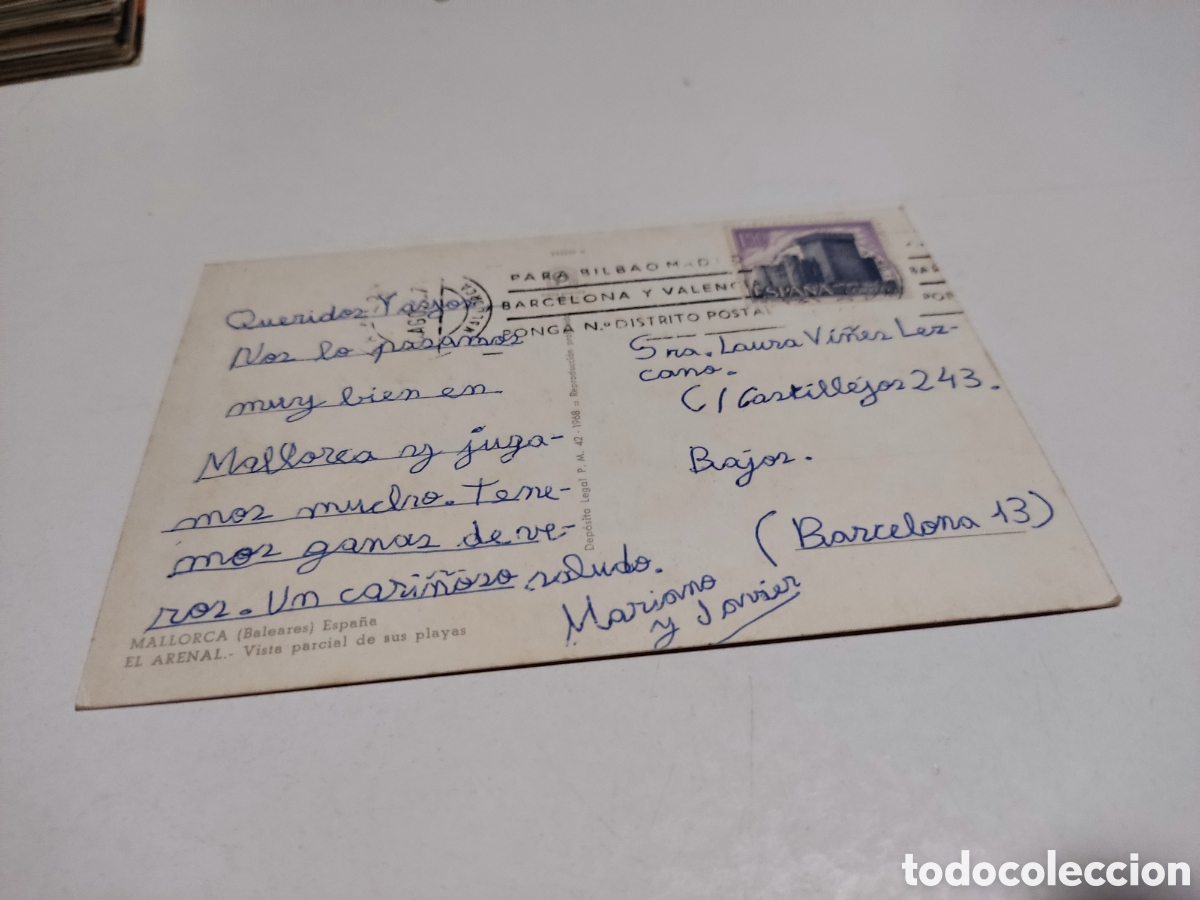 PARA BILBAO MAD
BARCELONA Y VALENC
PONGA N.º DISTRITO POSTA
ESPAÑA
MALLORCA
Queridos Yayos
Nos lo pasamos
muy bien en
Mallorca y juga-
mos mucho. Tene-
mos ganas de ve-
ros. Un cariñoso saludo.
Mariano
y Javier
Sra. Laura Víñez Lez-
cano.
C/ Castillejos 243.
Bajos.
(Barcelona 13)
Depósito Legal P. M. 42 - 1968 = Reproducción
MALLORCA (Baleares) España
EL ARENAL.- Vista parcial de sus playas
todocoleccion